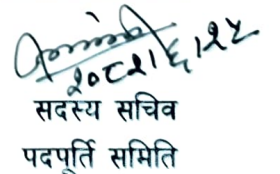 २०८२।६।२५
सदस्य सचिव
पदपूर्ति समिति